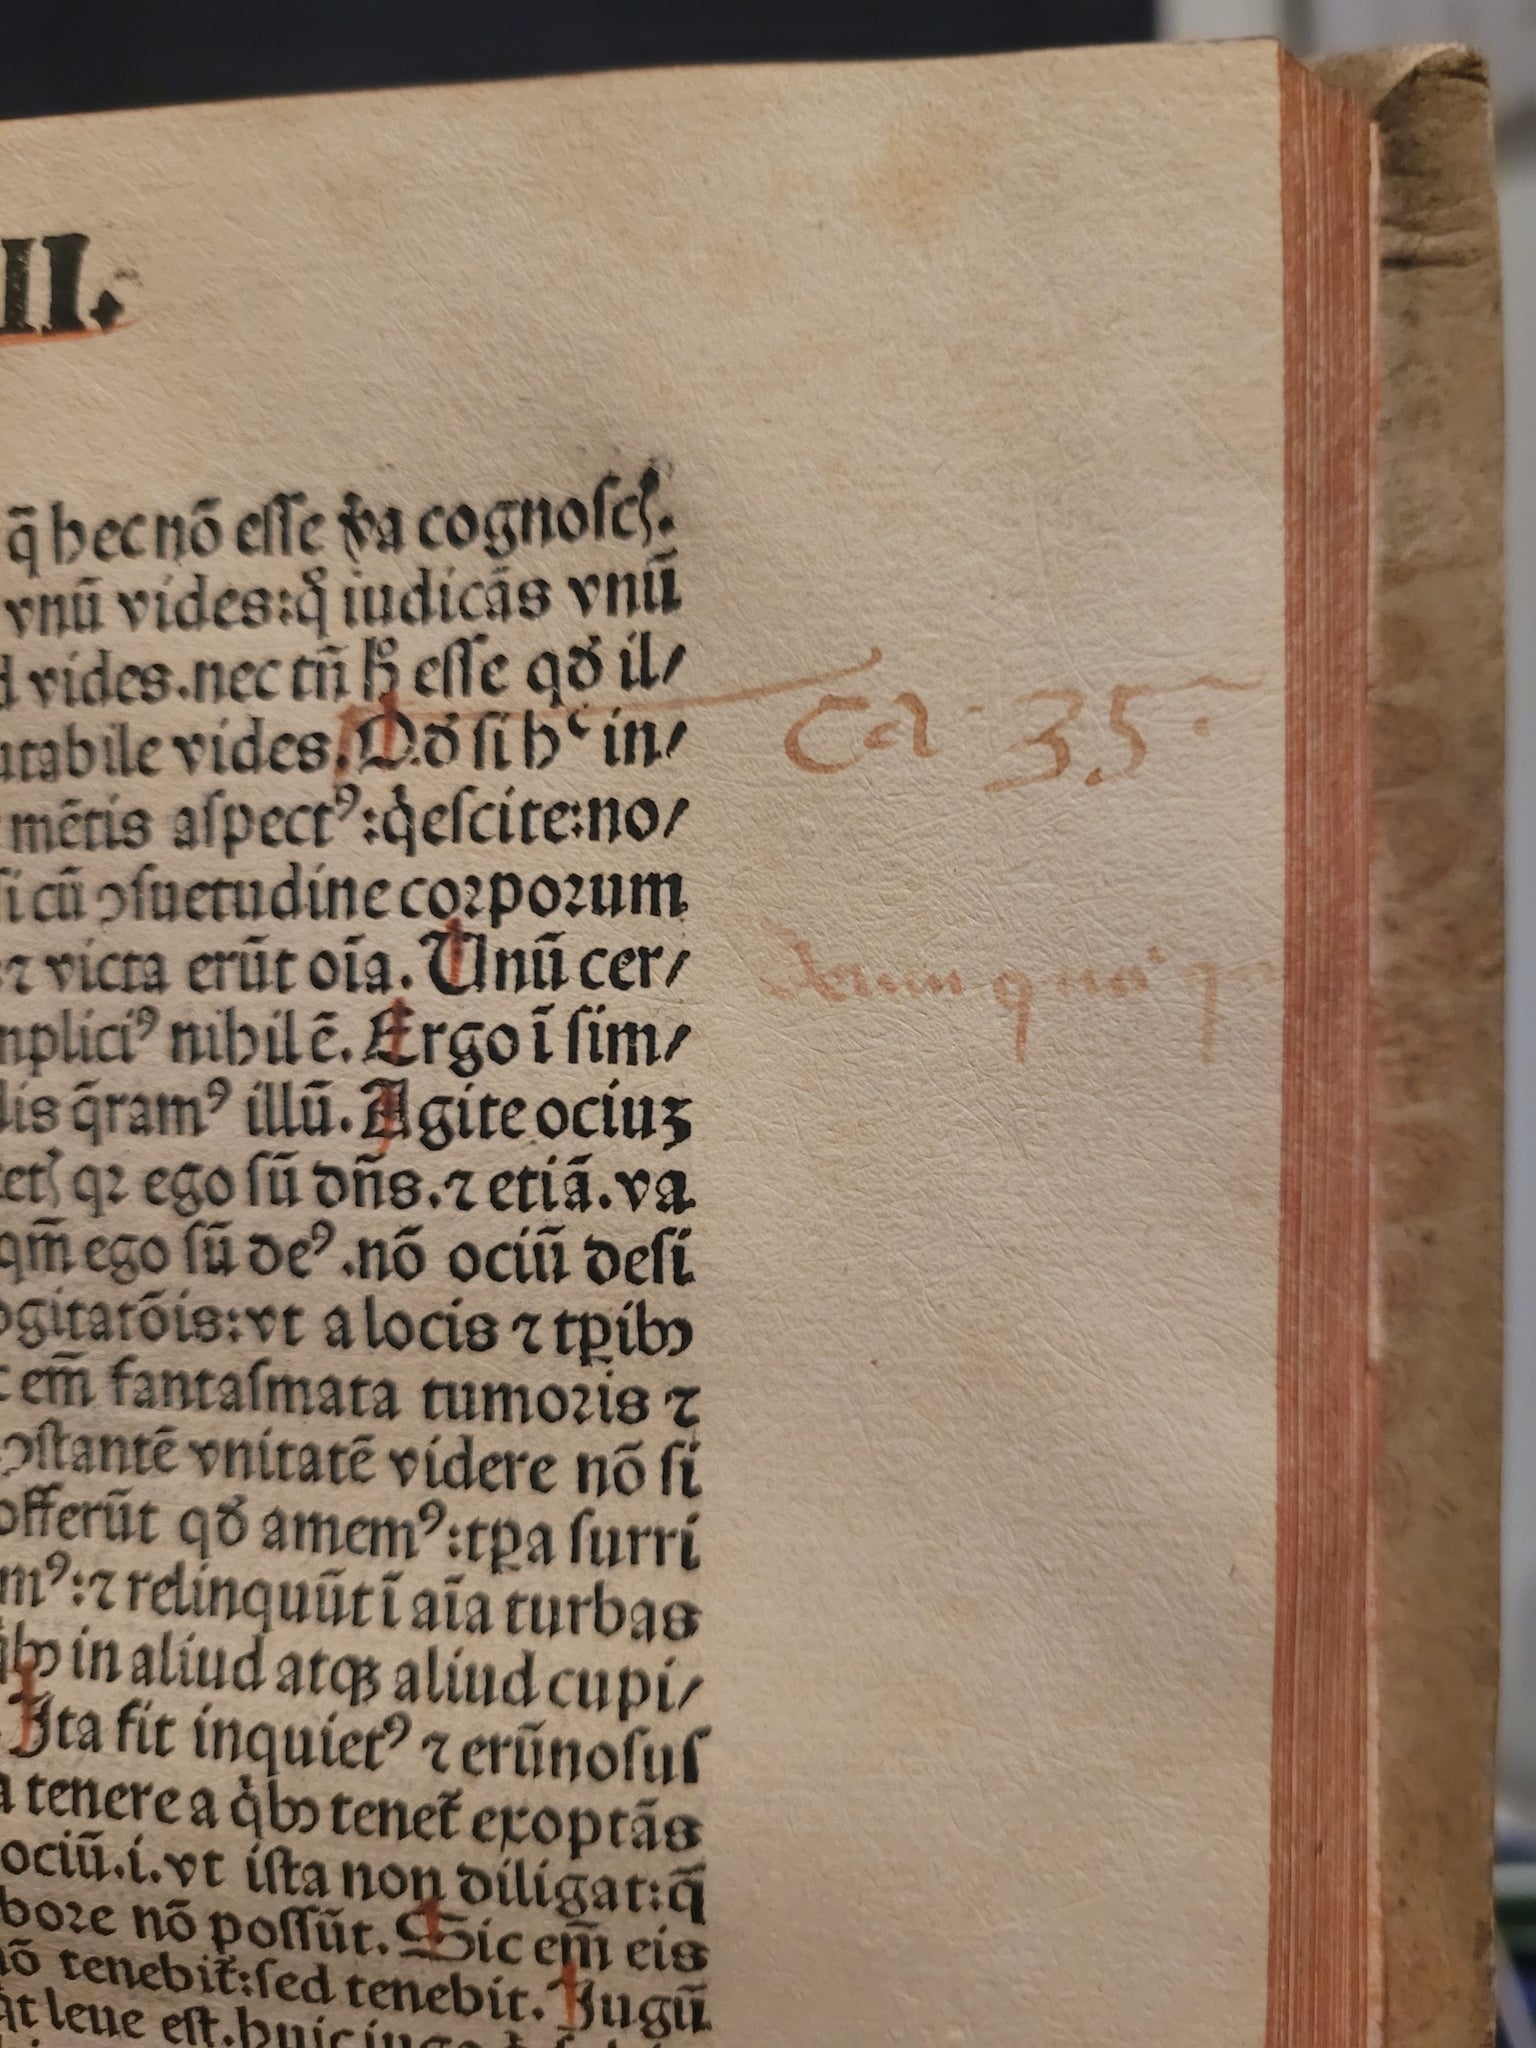 II.
q̄ hec nō eſſe v̾a cognoſcꝭ.
vnū vides: qͦ iudicās vnū
vides. nec tn̄ hͦ eſſe qđ il/
utabile vides. Qđ ſi hͨ in/
Ca. 35.
mētis aſpectꝰ: qͥeſcite: no/
ſi cū ↄſuetudine coꝛpoꝛum
⁊ victa erūt oīa. Unū cer/
mpliciꝰ nihil ē. Ergo ī ſim/
dis q̄ramꝰ illū. Agite ociuꝫ
etꝭ qꝛ ego ſū dn̄s. ⁊ etiā. va
qm̄ ego ſū deꝰ. nō ociū deſi
ogitatōis: vt a locis ⁊ tꝑibꝰ
em̄ fantaſmata tumoꝛis ⁊
ↄſtantē vnitatē videre nō ſi
offerūt qđ amemꝰ: tꝑa ſurri
mꝰ: ⁊ relinquūt ī aīa turbas
in aliud atqꝫ aliud cupi/
Ita fit inquietꝰ ⁊ erūnoſuſ
a tenere a qͥbꝰ tenet᷑ exoptās
ociū. i. vt iſta non diligat: q̄
boꝛe nō poſſūt. Sic em̄ eis
nō tenebit᷑: ſed tenebit. Jugū
leue eſt. huic